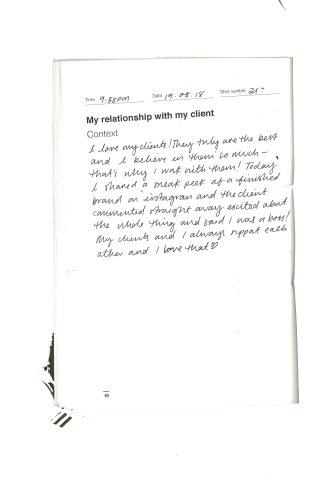 Time 9:38PM Date 19.08.18 Shot number 21
My relationship with my client
Context
I love my clients! They truly are the best
and I believe in them so much -
that's why I work with them! Today,
I shared a sneak peek of a finished
brand on instagram and the client
commented straight away excited about
the whole thing and said I was a boss!
My clients and I always support each
other and I love that ♡